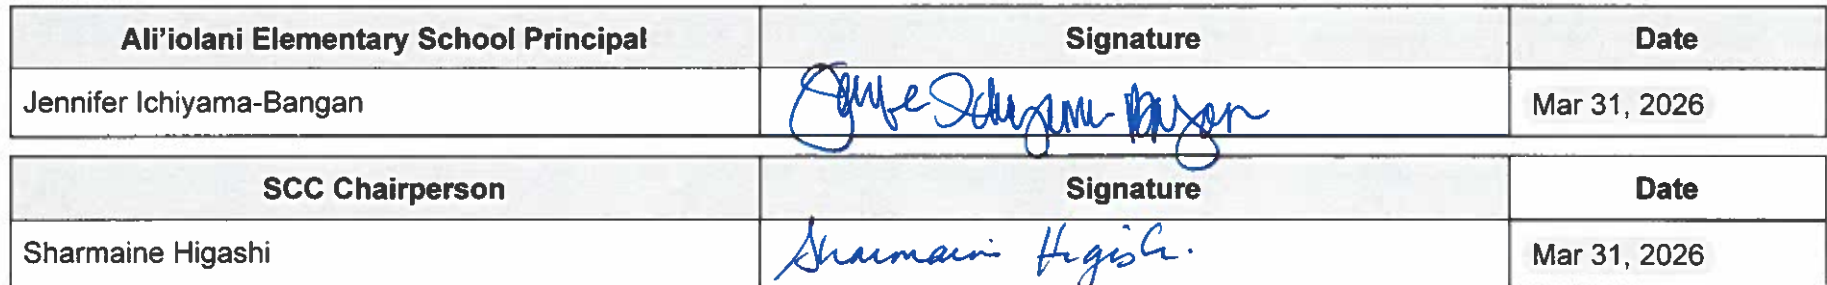 Ali'iolani Elementary School Principal Signature Date
Jennifer Ichiyama-Bangan Jennifer Ichiyama-Bangan Mar 31, 2026
SCC Chairperson Signature Date
Sharmaine Higashi Sharmaine Higashi Mar 31, 2026